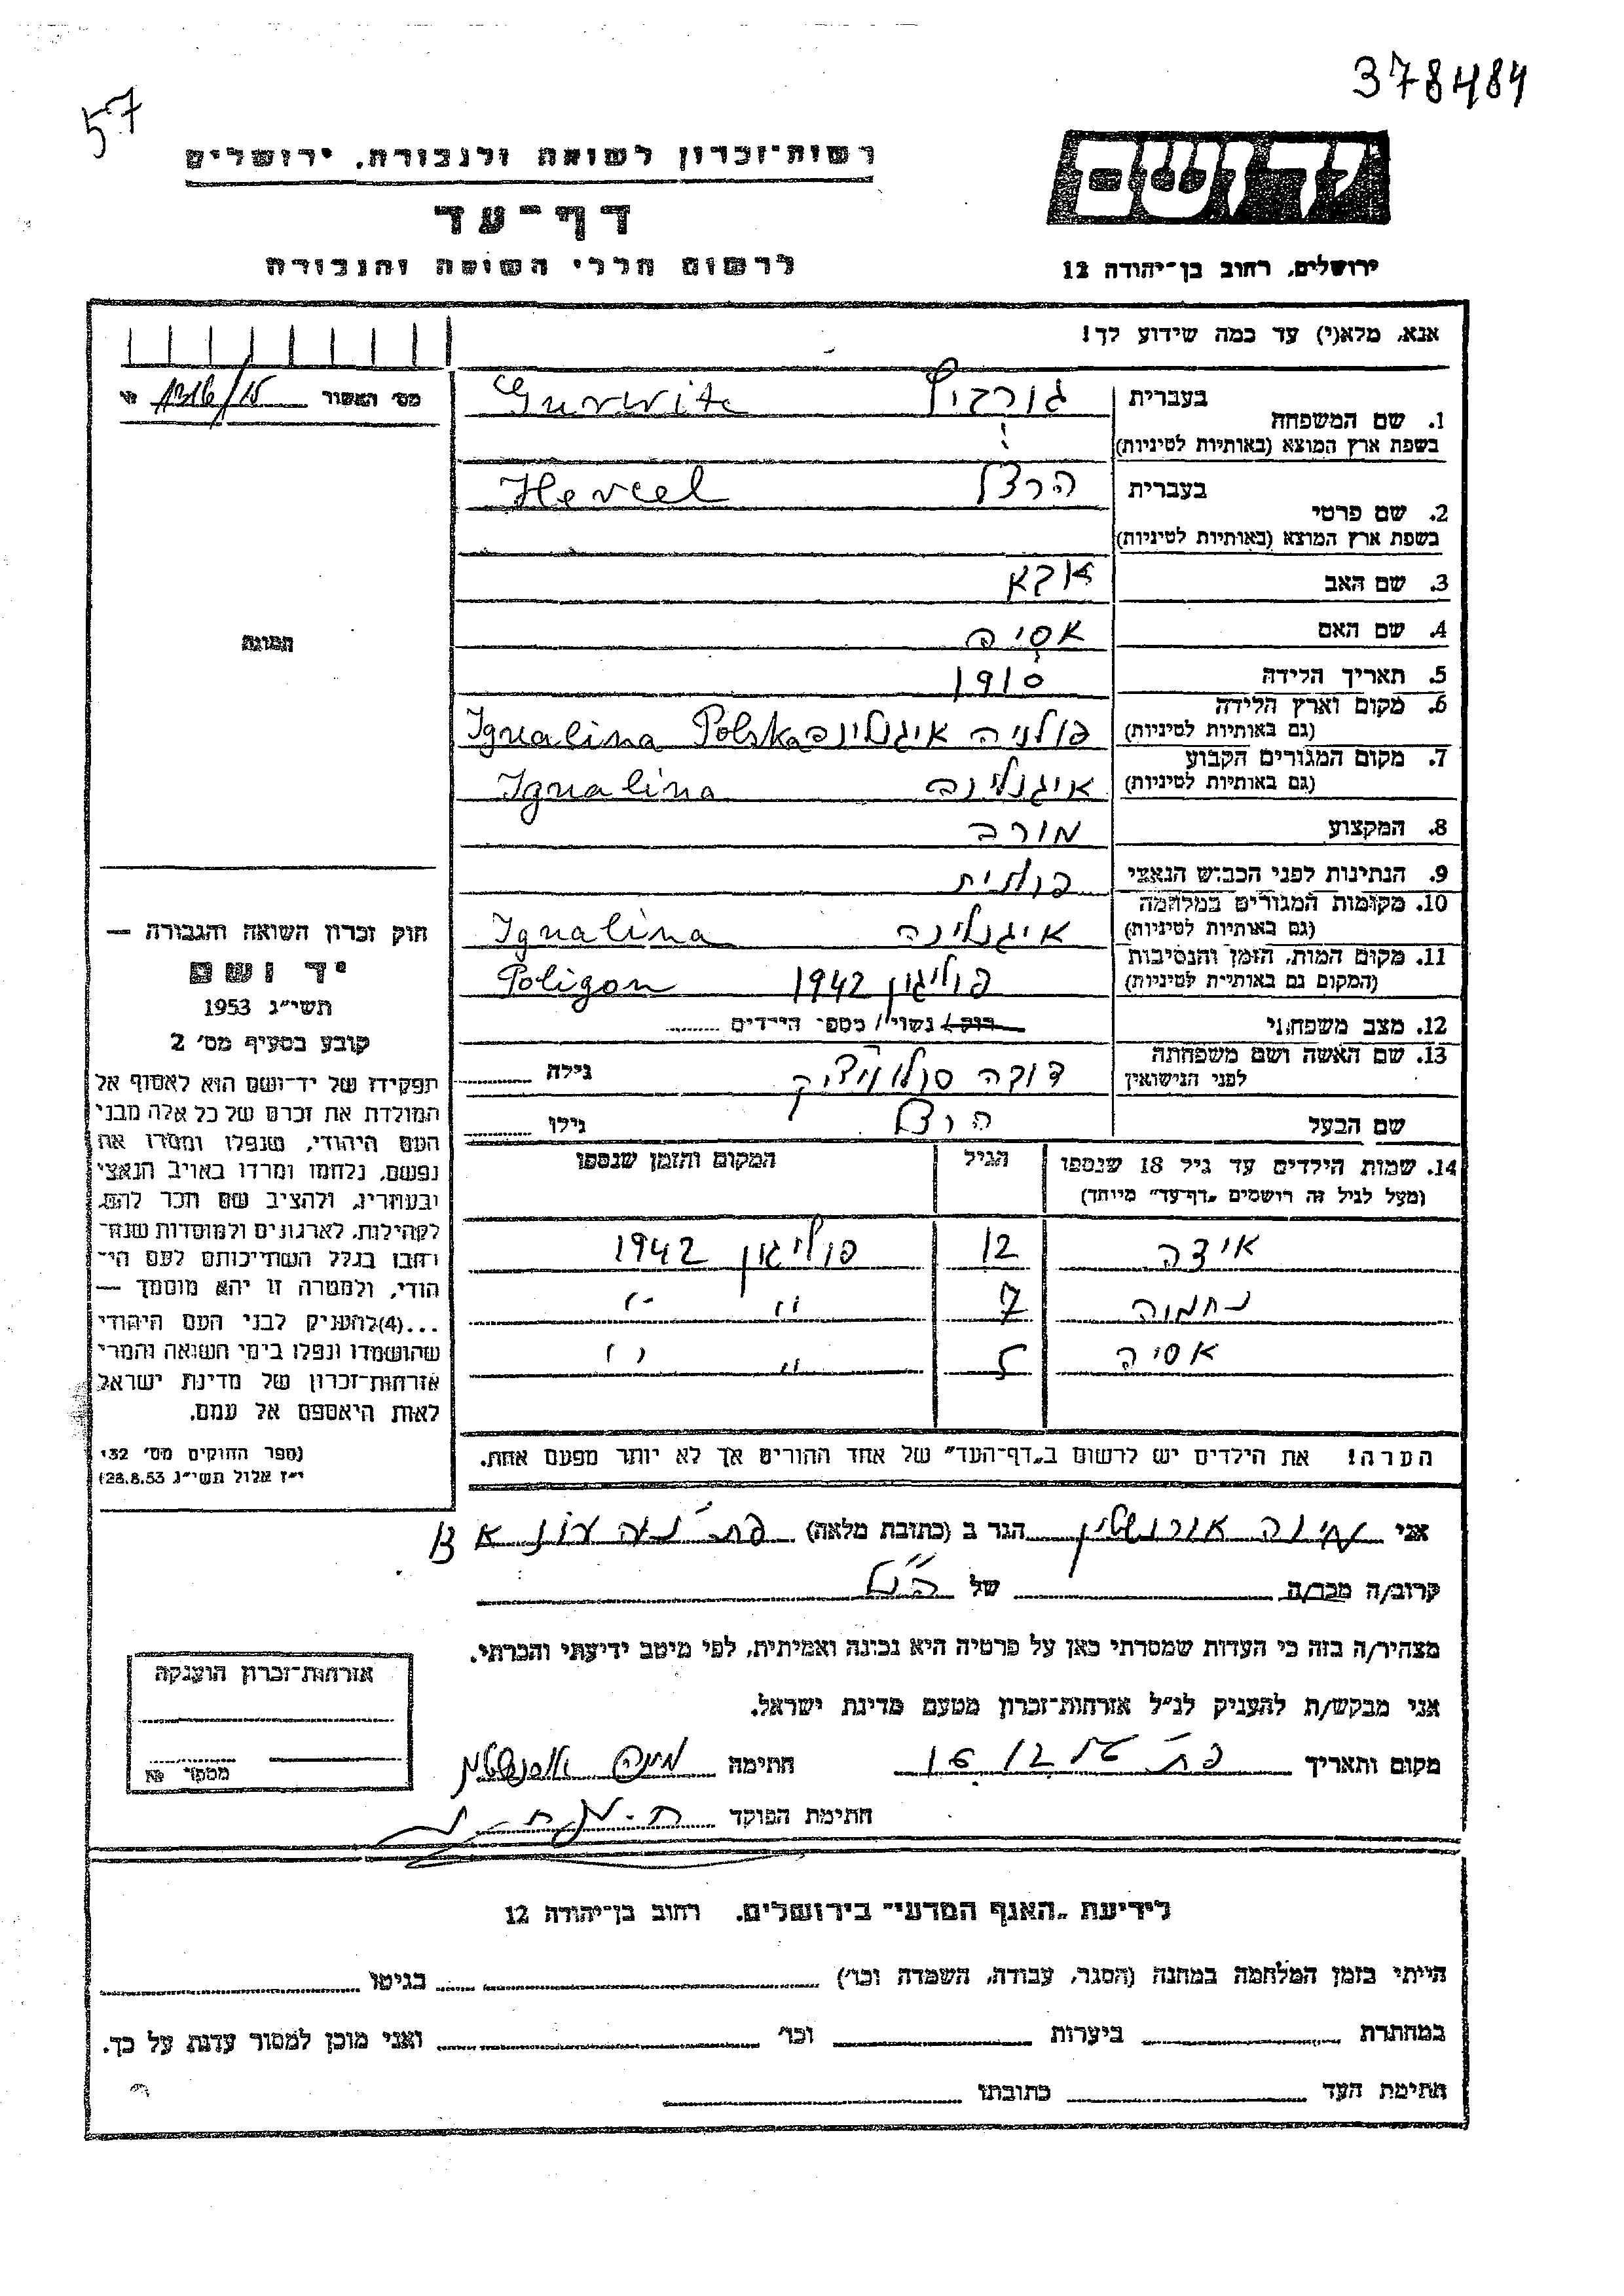 378484
57
רשות-זכרון לשואה ולגבורה, ירושלים
יד ושם
דף-עד
לרשום חללי השואה והגבורה
ירושלים, רחוב בן-יהודה 12
אנא, מלא(י) עד כמה שידוע לך!
מס׳ האשור
1. שם המשפחה בעברית גורביץ Gurwitz
בשפת ארץ המוצא (באותיות לטיניות)
2. שם פרטי בעברית הרצל Hercel
בשפת ארץ המוצא (באותיות לטיניות)
3. שם האב
4. שם האם אסיה
5. תאריך הלידה 1910
6. מקום וארץ הלידה (גם באותיות לטיניות) פולניה איגנלינה Ignalina Polska
7. מקום המגורים הקבוע (גם באותיות לטיניות) איגנלינה Ignalina
8. המקצוע מורה
9. הנתינות לפני הכבוש הנאצי פולנית
10. מקומות המגורים במלחמה (גם באותיות לטיניות) איגנלינה Ignalina
11. מקום המות, הזמן והנסיבות (המקום גם באותיות לטיניות) פוליגון 1942 Poligon
12. מצב משפחתי רוק/ נשוי/ מספר הילדים
13. שם האשה ושם משפחתה לפני הנישואין גילה
שם הבעל הרצל גילו
14. שמות הילדים עד גיל 18 שנספו הגיל המקום והזמן שנספו
(מעל לגיל זה רושמים „דף-עד״ מיוחד)
אידה 12 פוליגון 1942
נחמה 7 " "
אסיה 5 " "
הערה! את הילדים יש לרשום ב„דף-העד״ של אחד ההורים אך לא יותר מפעם אחת.
התמונה
חוק זכרון השואה והגבורה —
יד ושם
תשי״ג 1953
קובע בסעיף מס׳ 2
תפקידו של יד-ושם הוא לאסוף אל
המולדת את זכרם של כל אלה מבני
העם היהודי, שנפלו ומסרו את
נפשם, נלחמו ומרדו באויב הנאצי
ובעוזריו, ולהציב שם וזכר להם,
לקהילות, לארגונים ולמוסדות שנח-
רבו בגלל השתייכותם לעם הי-
הודי, ולמטרה זו יהא מוסמך —
...(4) להעניק לבני העם היהודי
שהושמדו ונפלו בימי השואה והמרי
אזרחות-זכרון של מדינת ישראל
לאות היאספם אל עמם.
(ספר החוקים מס׳ 132
י״ז אלול תשי״ג 28.8.53)
אני הגר ב (כתובת מלאה)
קרוב/ה מכר/ה של
מצהיר/ה בזה כי העדות שמסרתי כאן על פרטיה היא נכונה ואמיתית, לפי מיטב ידיעתי והכרתי.
אני מבקש/ת להעניק לנ״ל אזרחות-זכרון מטעם מדינת ישראל.
מקום ותאריך חתימה
חתימת הפוקד
אזרחות-זכרון הוענקה
מספר №
לידיעת „האגף המדעי״ בירושלים, רחוב בן-יהודה 12
הייתי בזמן המלחמה במחנה (הסגר, עבודה, השמדה וכו׳) בגיטו
במחתרת ביערות וכו׳ ואני מוכן למסור עדות על כך.
חתימת העד כתובתו